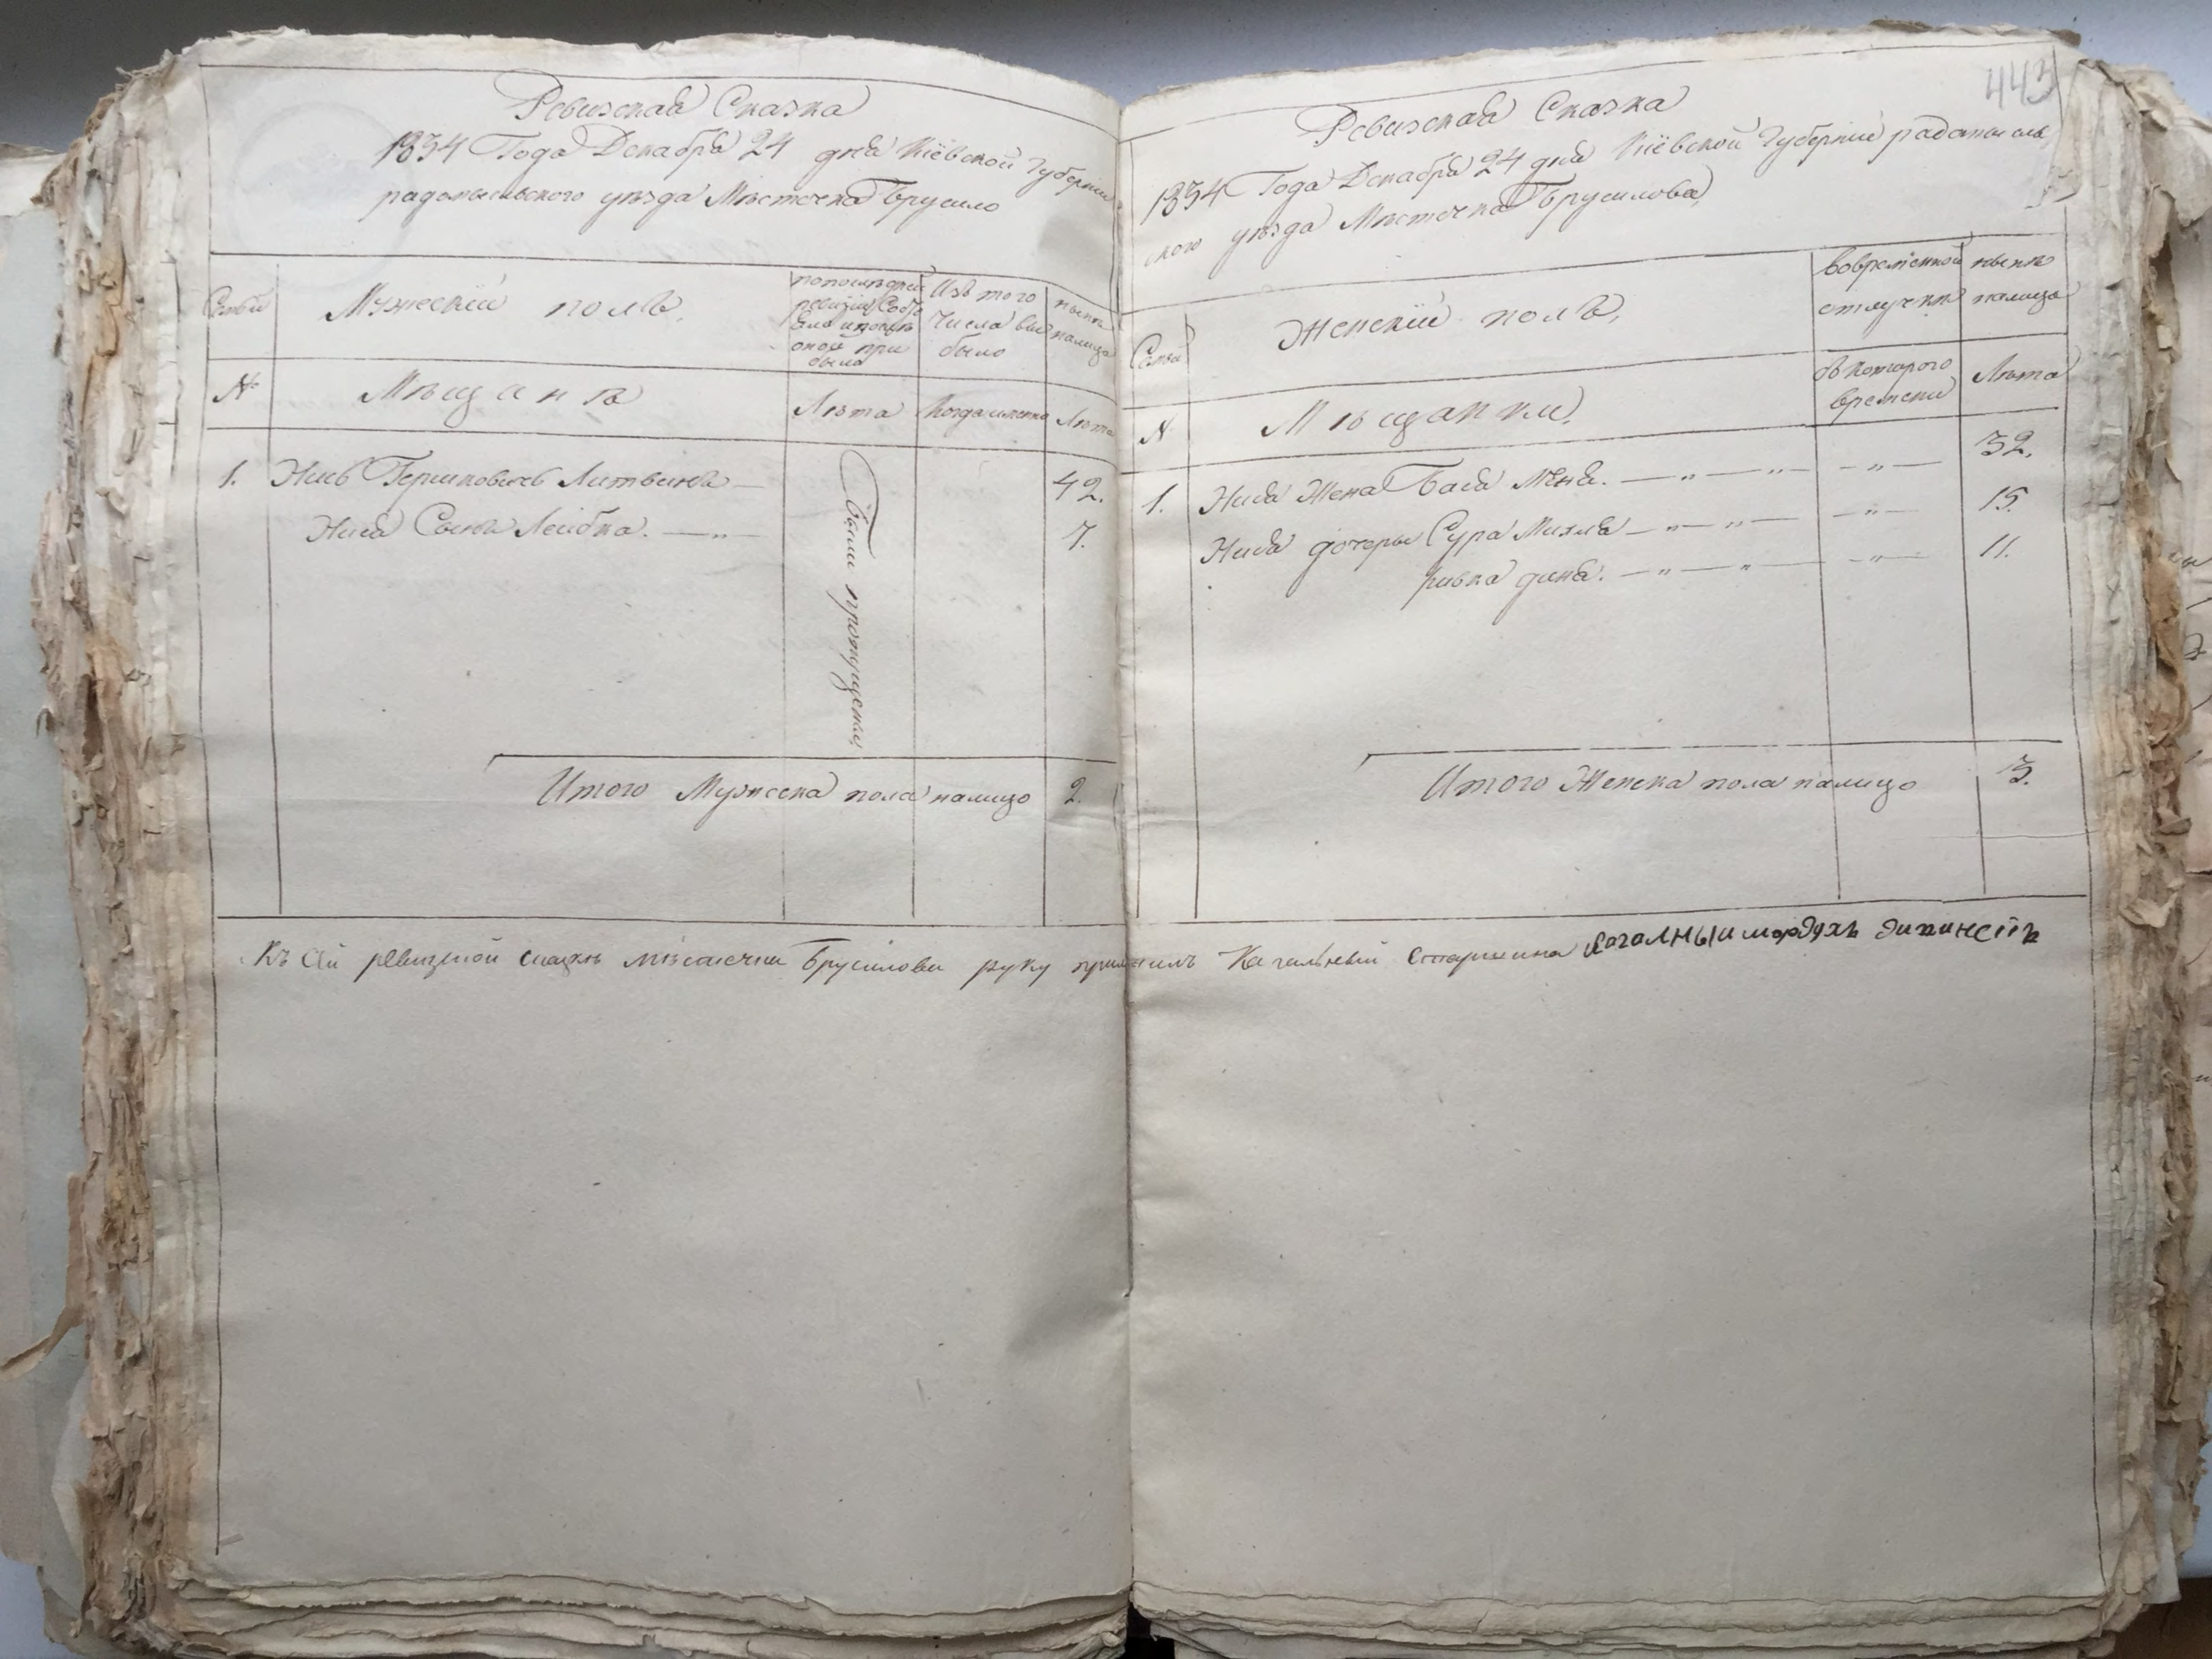 Ревизская Сказка
1834 Года Декабря 24 дня Кіевской Губерніи
радомысльского уезда Местечка Брусило
Семьи
Мужескій полъ.
по последней ревизіи Состояло и после оной прибыло
Изъ того Числа выбыло
ныне налицо
№
Мещане
Лета
Когда именно
Лета
1. Янсъ Гершковичъ Литвинъ — 42.
Янса Сынъ Лейбка. — „ — 7.
Были пропущены
Итого Мужеска пола налицо 2.
443
Ревизская Сказка
1834 Года Декабря 24 дня Кіевской Губерніи радомысль
ского уезда Местечка Брусилова
Семьи
Женскій полъ.
во временной отлучке
ныне налицо
№
Мещанки.
Съ которого времени
Лета
1. Жена Бася — „ — „ — — „ — 32.
дочеры Сура — „ — „ — — „ — 15.
ривка дина. — „ — „ — — „ — 11.
Итого Женска пола налицо 3.
Къ сей ревизской сказке местечка Брусилова руку приложилъ Кагальный Старшина мордухъ